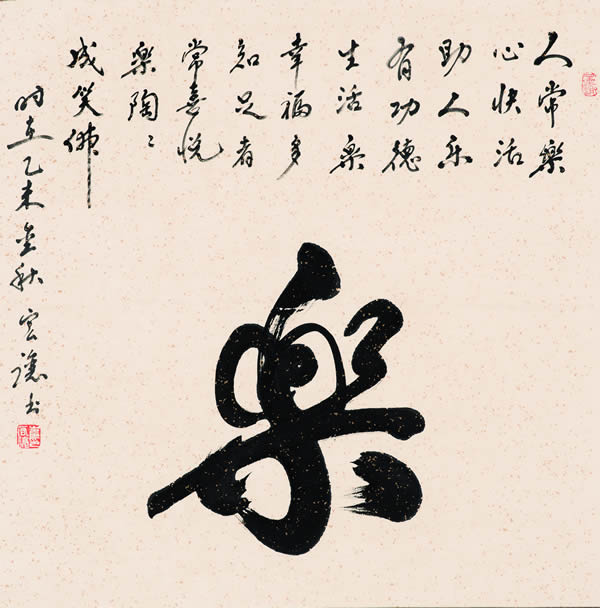 人常樂
心快活
助人乐
有功德
生活樂
幸福多
知足者
常喜悦
樂陶〻
成笑佛
时在乙未金秋 宏书
樂